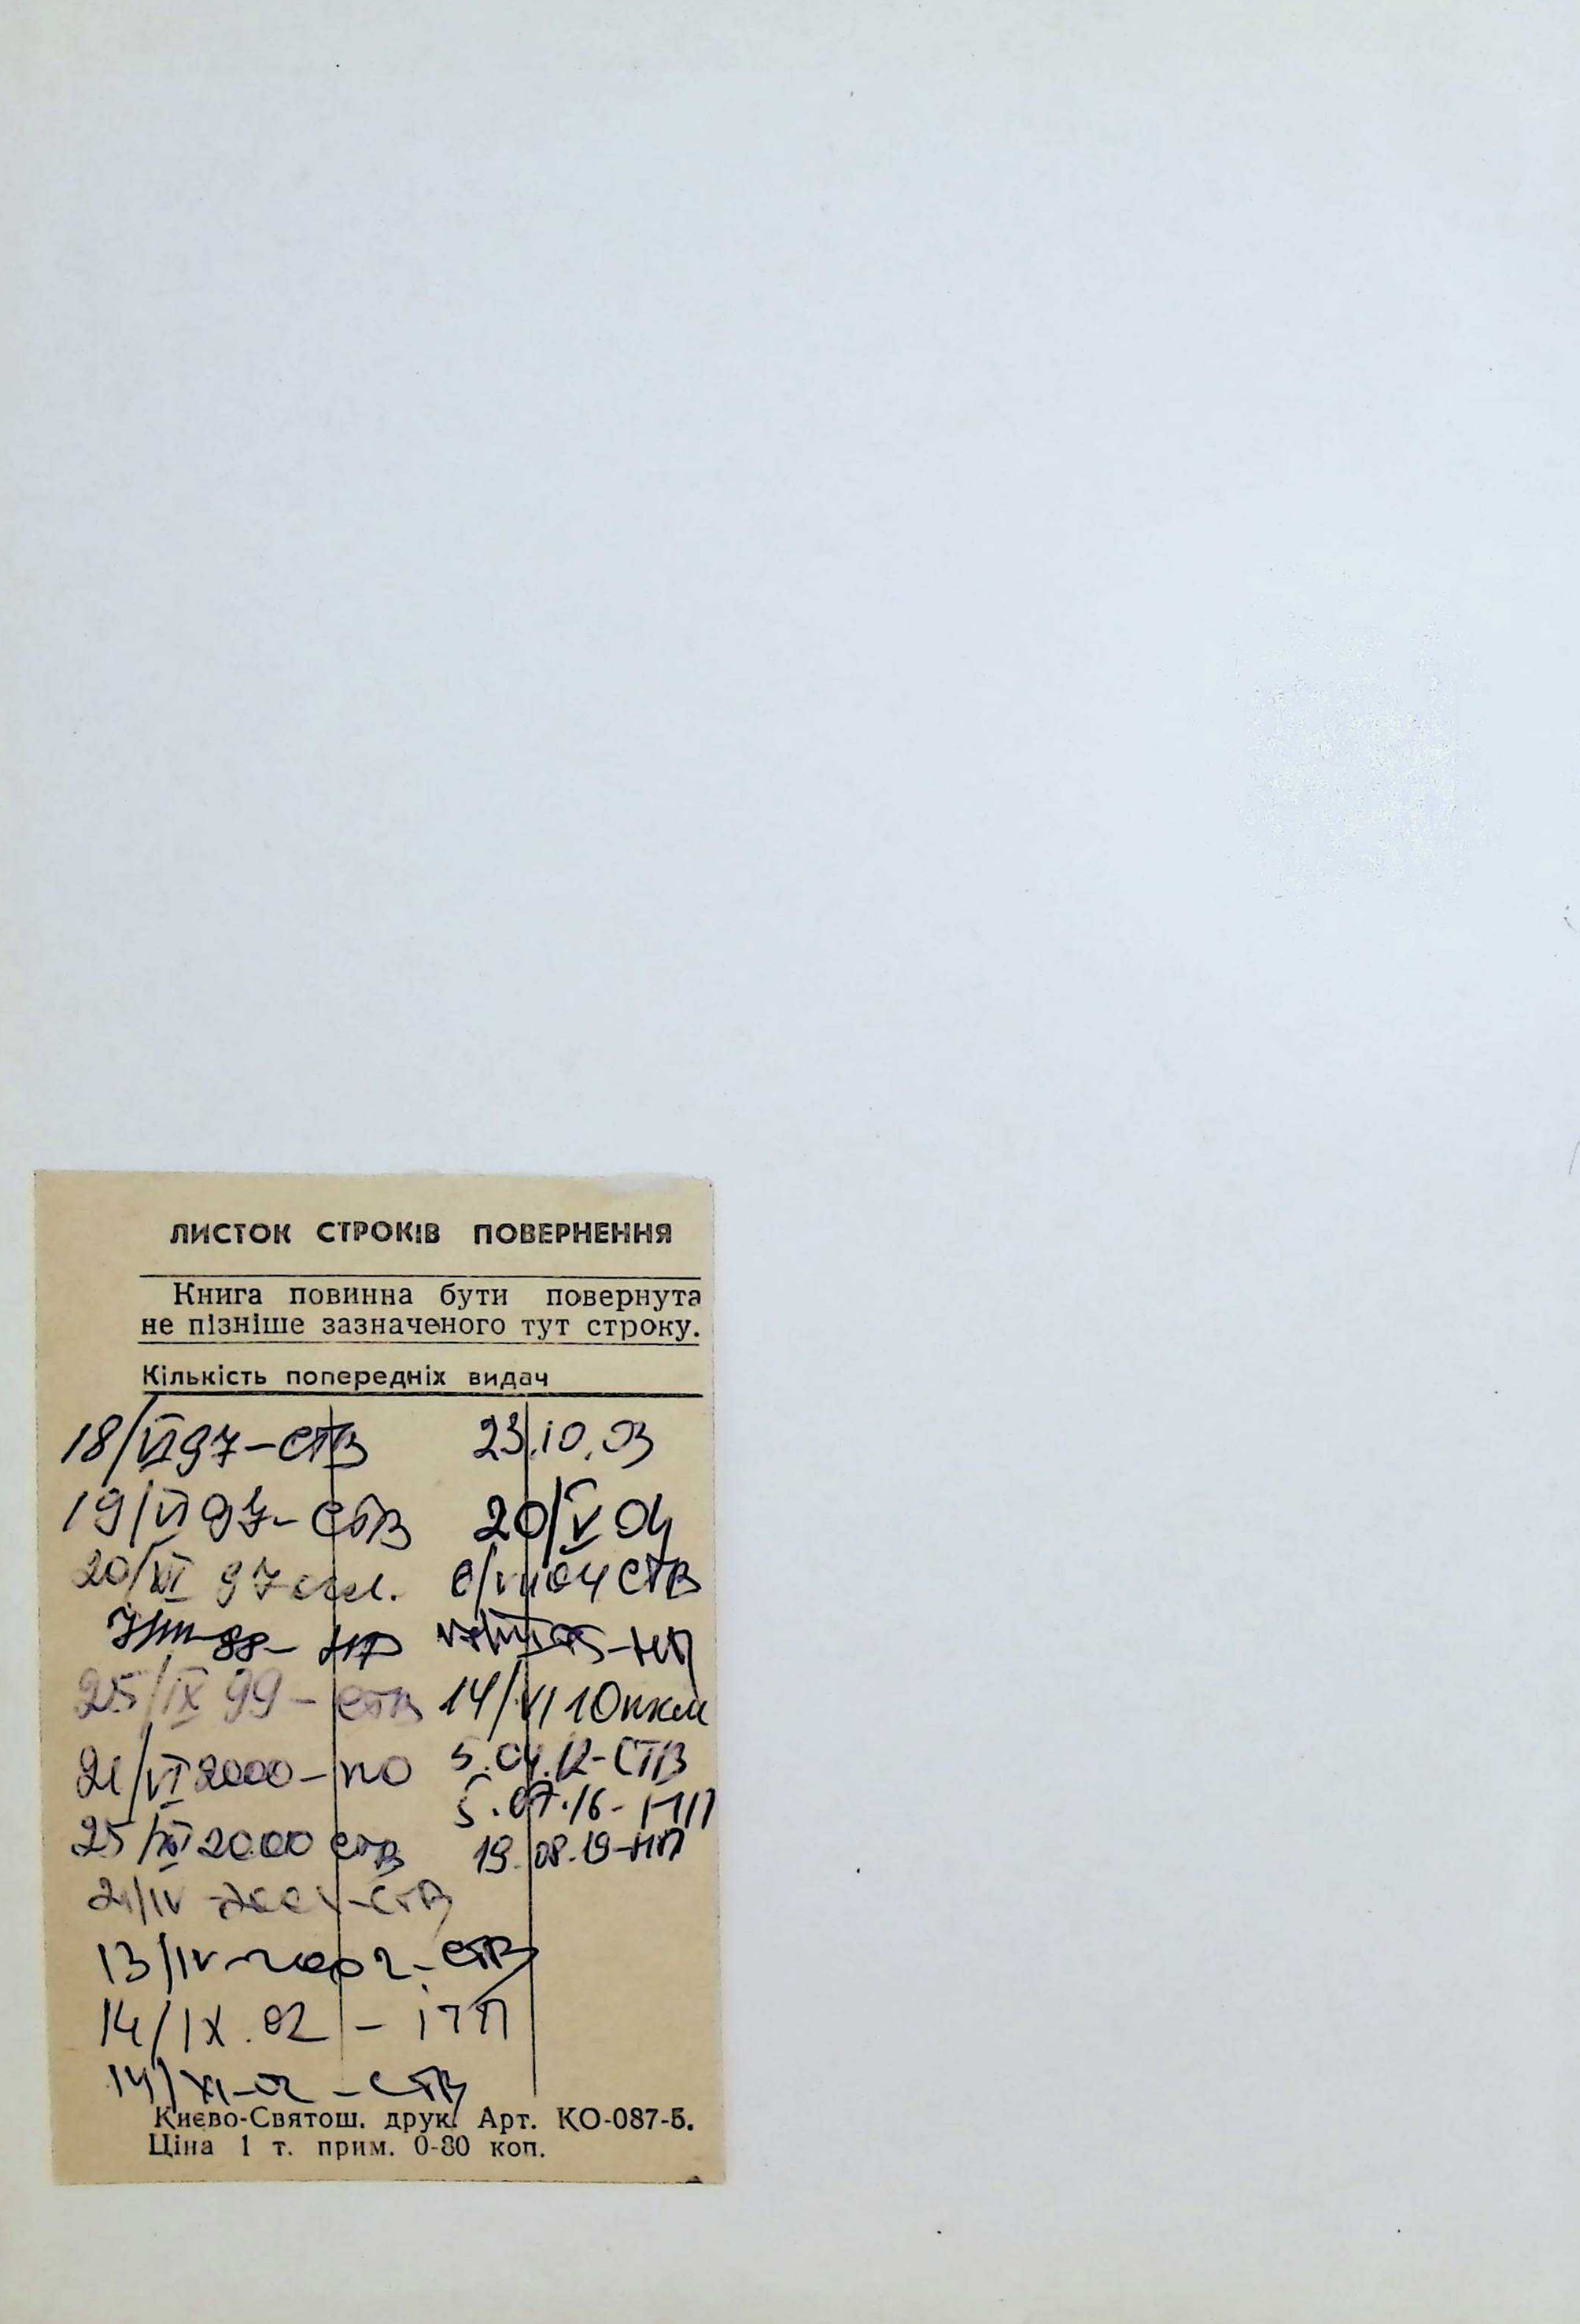 ЛИСТОК СТРОКІВ ПОВЕРНЕННЯ
Книга повинна бути повернута
не пізніше зазначеного тут строку.
Кількість попередніх видач
18/VI 97-СТВ
19/VI 97-СТВ
20/XI 97
НП
25/IX 99-СТВ
21/VI 2000-ПО
25/XI 2000 СТВ
21/IV СТВ
13/IV-2002-СТВ
14/IX.02-ІТП
14/XI-02-СТВ
23.10.03
20/V 04
6/VII 04 СТВ
НП
14/VI 10
5.04.12-СТВ
5.07.16-НП
19.08.19-НП
Києво-Святош. друк. Арт. КО-087-Б.
Ціна 1 т. прим. 0-80 коп.